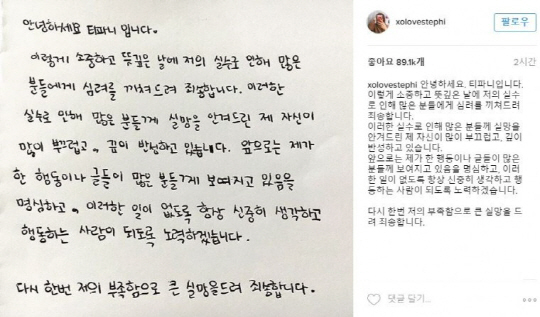 안녕하세요 티파니 입니다.
이렇게 소중하고 뜻깊은 날에 저의 실수로 인해 많은
분들에게 심려를 끼쳐드려 죄송합니다. 이러한
실수로 인해 많은 분들께 실망을 안겨드린 제 자신이
많이 부끄럽고, 깊이 반성하고 있습니다. 앞으로는 제가
한 행동이나 글들이 많은 분들께 보여지고 있음을
명심하고, 이러한 일이 없도록 항상 신중히 생각하고
행동하는 사람이 되도록 노력하겠습니다.
다시 한번 저의 부족함으로 큰 실망을드려 죄송합니다.
xolovestephi
팔로우
좋아요 89.1k개
2시간
xolovestephi 안녕하세요. 티파니입니다.
이렇게 소중하고 뜻깊은 날에 저의 실수
로 인해 많은 분들에게 심려를 끼쳐드려
죄송합니다.
이러한 실수로 인해 많은 분들께 실망을
안겨드린 제 자신이 많이 부끄럽고, 깊이
반성하고 있습니다.
앞으로는 제가 한 행동이나 글들이 많은
분들께 보여지고 있음을 명심하고, 이러
한 일이 없도록 항상 신중히 생각하고 행
동하는 사람이 되도록 노력하겠습니다.
다시 한번 저의 부족함으로 큰 실망을 드
려 죄송합니다.
댓글 달기...